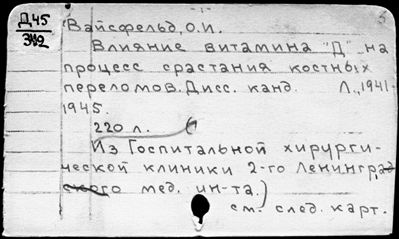 Д45
342
5
Вайсфельд, О.И.
Влияние витамина "Д" на
процесс срастания костных
переломов. Дисс. канд. Л., 1941-
1945.
220 л. (
Из Госпитальной хирурги-
ческой клиники 2-го Ленинград
ского мед. ин-та.)
см. след. карт.